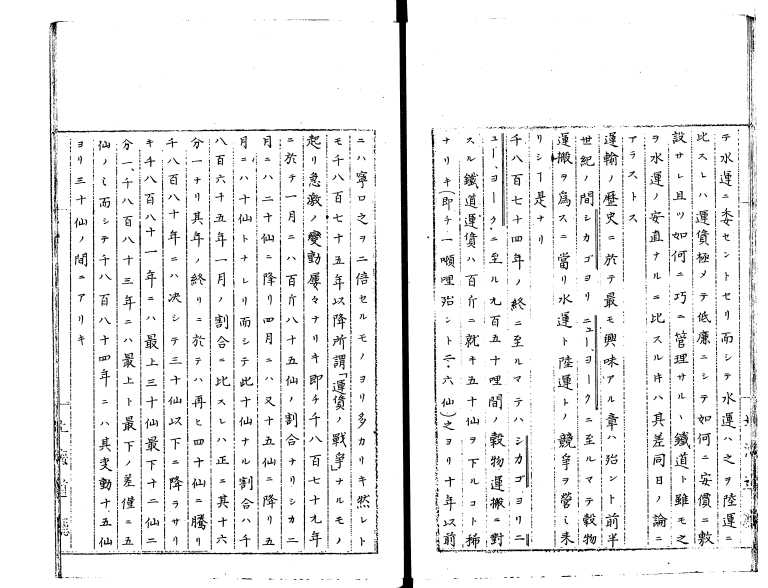 テ水運ニ委セントセリ而シテ水運ハ之ヲ陸運ニ
比スレハ運賃極メテ低廉ニシテ如何ニ安價ニ敷
設サレ且ツ如何ニ巧ニ管理サルヽ鐵道ト雖モ之
ヲ水運ノ安直ナルニ比スル片ハ其差同日ノ論ニ
アラストス
運輸ノ歴史ニ於テ最モ興味アル章ハ殆ント前半
世紀ノ間シカゴヨリニュー、ヨークニ至ルマテ穀物
運搬ヲ爲スニ當リ水運ト陸運トノ競爭ヲ營ミ来
リシー是ナリ
千八百七十四年ノ終ニ至ルマテハシカゴヨリニ
ュー、ヨークニ至ル九百五十哩間ノ穀物運搬ニ對
スル鐵道運賃ハ百斤ニ就キ五十仙ヲ下ルコト稀
ナリキ(即チ一噸哩殆ント二・六仙)之ヨリ十年以前
ニハ寧ロ之ヲ二倍セルモノヨリ多カリキ然レト
モ千八百七十五年以降所謂「運賃ノ戰爭」ナルモノ
起リ急激ノ變動屢々ナリキ即チ千八百七十九年
ニ於テ一月ニハ百斤八十五仙ノ割合ナリシカ二
月ニハ二十仙ニ降リ四月ニハ又十五仙ニ降リ五
月ニハ十仙トナレリ而シテ此十仙ナル割合ハ千
八百六十五年一月ノ割合ニ比スレハ正ニ其十六
分一ナリ其年ノ終リニ於テハ再ヒ四十仙ニ騰リ
千八百八十年ニハ决シテ三十仙以下ニ降ラサリ
キ千八百八十一年ニハ最上三十仙最下十二仙二
分一、千八百八十三年ニハ最上ト最下ノ差僅ニ五
仙ノミ而シテ千八百八十四年ニハ其変動十五仙
ヨリ三十仙ノ間ニアリキ